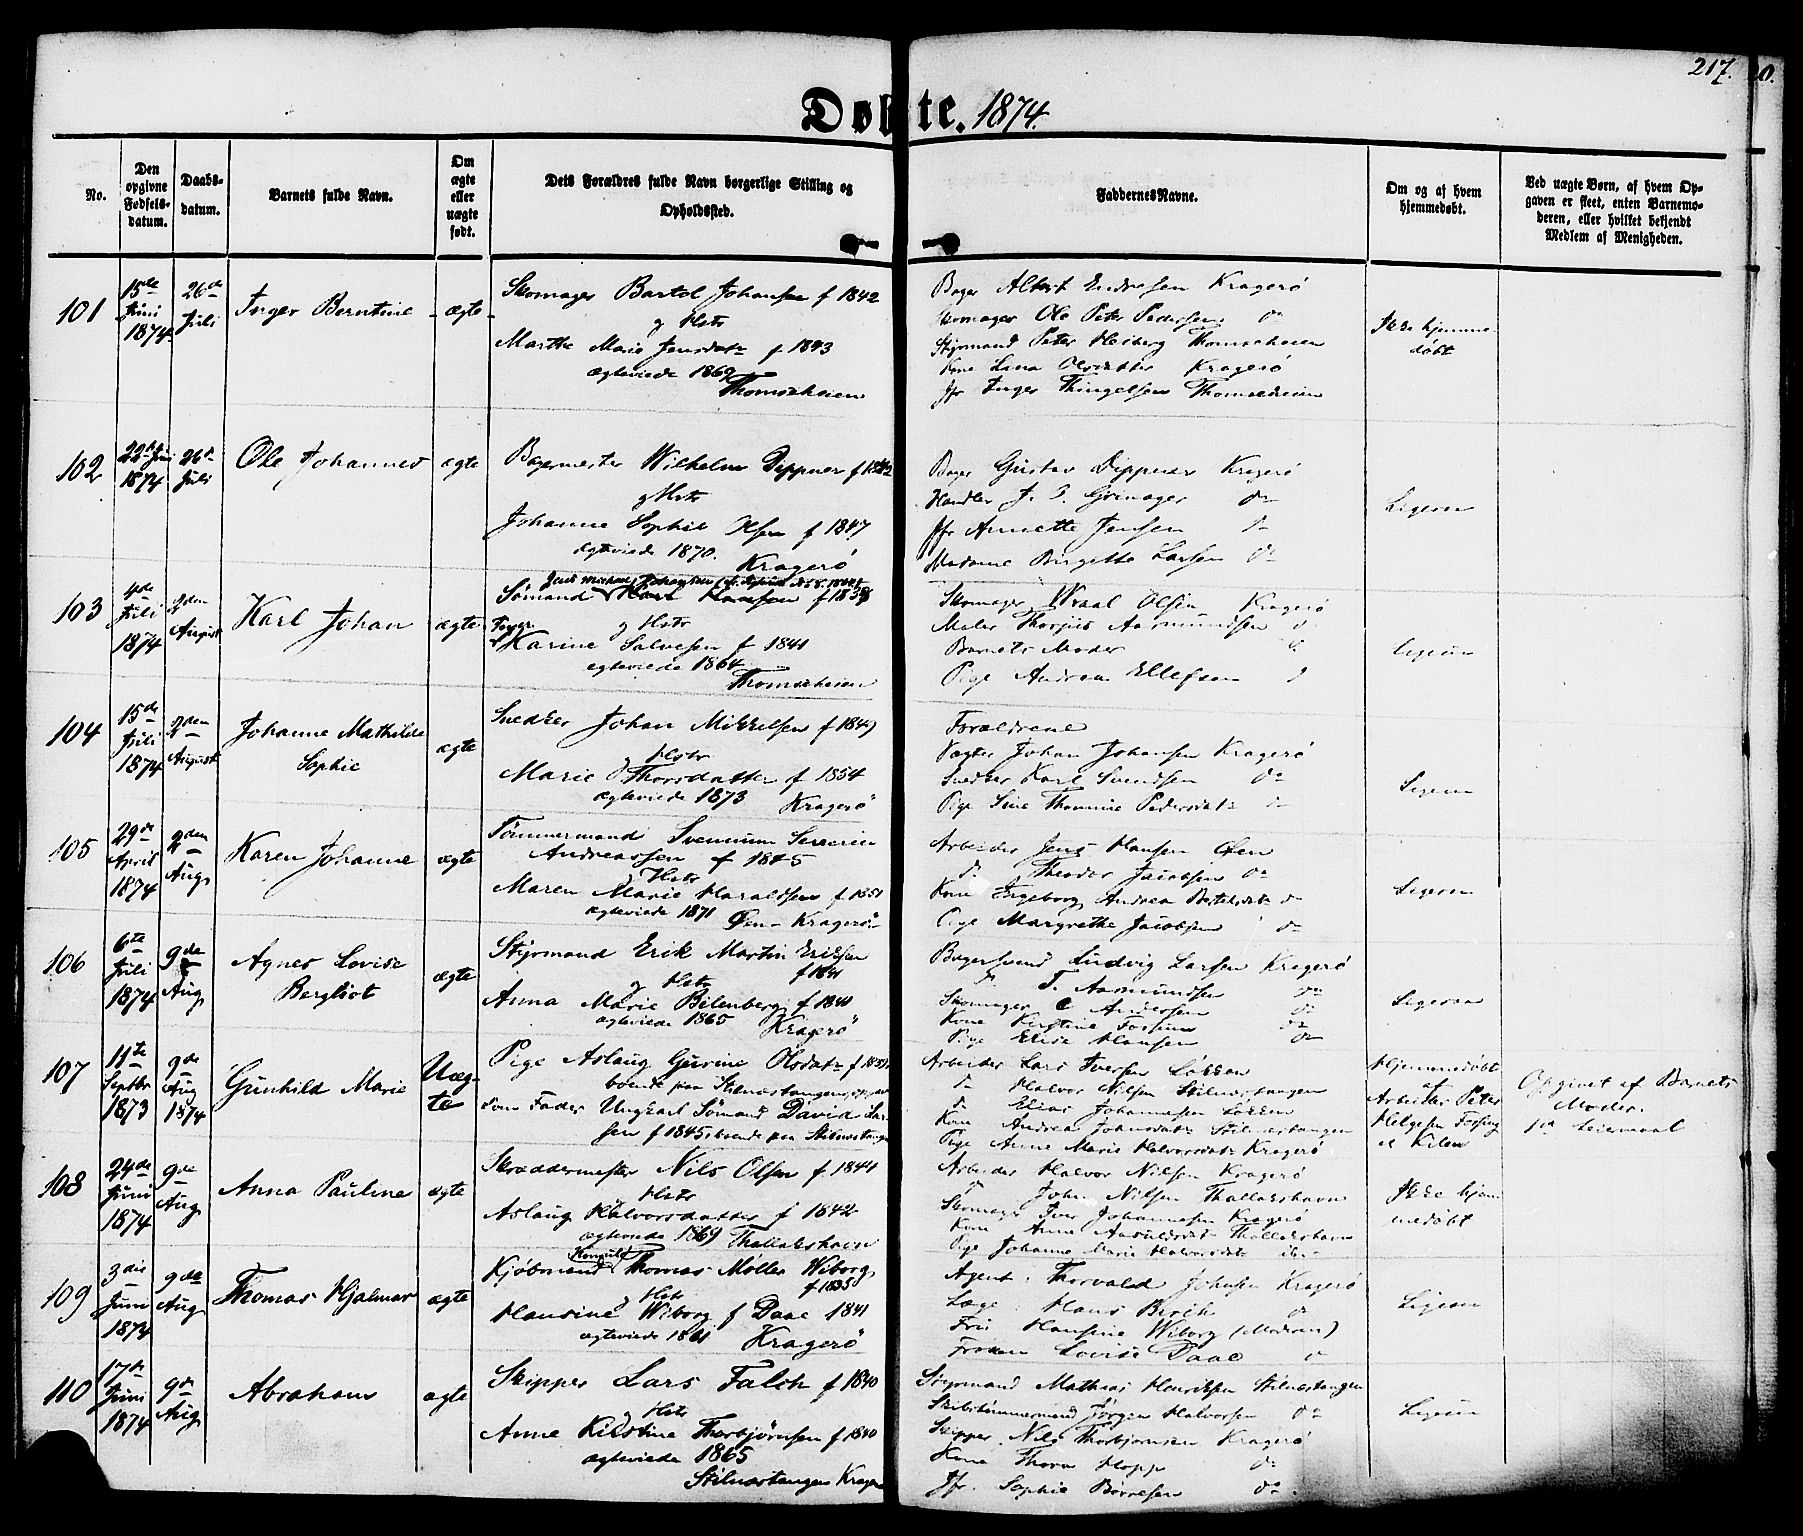 217.
Døbte. 1874.
No.
Den opgivne Fødsels-datum.
Daabs-datum.
Barnets fulde Navn.
Om ægte eller uægte født.
Dets Forældres fulde Navn borgerlige Stilling og Opholdssted.
Faddernes Navne.
Om og af hvem hjemmedøbt.
Ved uægte Børn, af hvem Opgaven er skeet, enten Barnemoderen, eller hvilket bekjendt Medlem af Menigheden.
101
15de Juni 1874
26de Juli
Inger Berntine
ægte
Skomager Bartol Johansen f 1842
og Hstr
Marthe Marie Jensdatr f 1843
ægteviede 1869
Thomasheien
Bager Albert Endresen Kragerö
Skomager Ole Peter Pedersen do
Styrmand Peter Heiberg Thomasheien
Kone Lina Olsdatter Kragerö
Jfr Inger Thingelsen Thomasheien
Ikke hjemme
døbt
102
22de Juni 1874
26de Juli
Ole Johannes
ægte
Bagermester Wilhelm Dippner f 1842
og Hstr
Johanne Sophie Olsen f 1847
ægteviede 1870.
Kragerö
Bager Gustav Dippner Kragerö
Handler J. Grimager do
Jfr Annette Jensen do
Madame Birgette Larsen do
Ligesaa
103
Juli 1874
2den August
Karl Johan
ægte
Sömand Karl Hansen f 1838
og Hstr
Karine Salvesen f 1841
ægteviede 1864
Thomasheien
Skomager Wraal Olsen Kragerö
Maler Thorjus Aasmundsen do
Barnets Moder do
Pige Andrea Ellefsen do
Ligesaa
104
15de Juli 1874
2den August
Johanne Mathilde
Sophie
ægte
Snedker Johan Mikkelsen f 1849
og Hstr
Marie Thorsdatter f 1854
ægteviede 1873 Kragerö
Forældrene
Vagter Johan Johansen Kragerö
Snedker Karl Svendsen do
Pige Sine Thomine Pedersdatr do
Ligesaa
105
29de April 1874
2den Aug.
Karen Johanne
ægte
Tömmermand Svennum Severin
Andreassen f 1845
og Hstr
Maren Marie Haraldsen f 1851
ægteviede 1871 Øen Kragerö
Arbeider Jens Hansen Øen
do Theodor Jacobsen do
Kone Ingeborg Andrea Bertelsdatr do
Pige Margrethe Jacobsen do
Ligesaa
106
6te Juli 1874
9de Aug
Agnes Lovise
Bergliot
ægte
Styrmand Erik Martin Eriksen
f 1841
og Hstr
Anna Marie Bilenberg f 1841
ægteviede 1865 Kragerö
Bagersvend Ludvig Larsen Kragerö
do T. Aasmundsen do
Skomager C Andersen do
Kone Kirstine Fossum do
Pige Elise Hansen do
Ligesaa
107
11te Septbr 1873
9de Aug 1874
Gunhild Marie
Uægte
Pige Aslaug Gurine Olsdatr f 1851
boende paa Stilnæstangen, opgav
som Fader Ungkarl Sömand David Larsen
f 1845, boende paa Stilnæstangen
Arbeider Lars Iversen Løkken
do Halvor Nilsen Stilnæstangen
do Elias Johannesen Løkken
Kone Andrea Johnsdatr Stilnæstangen
Pige Anne Marie Halvorsdatr Kragerö
Hjemmedøbt
af
Arbeider Peter
Helgesen Fossing
et Kilen
Opgivet af Barnets
Moder.
1ste Leiermaal
108
24de Juni 1874
9de Aug
Anna Pauline
ægte
Skræddermester Nils Olsen f 1844
og Hstr
Aslaug Halvorsdatter f 1842
ægteviede 1869 Thallakshavn
Arbeider Halvor Nilsen Kragerö
do John Nilsen Thallakshavn
Skomager Iver Johannesen Kragerö
Kone Anne Aanuldsdatr Thallakshavn
Pige Johanne Marie Halvorsdatr ibm
Ikke hjem
medøbt
109
3die Juni 1874
9de Aug
Thomas Hjalmar
ægte
Kjöbmand Konsul Thomas Møller Wiborg
f 1835
og Hstr
Hansine Wiborg f Daae 1841
ægteviede 1861 Kragerö
Agent Thorvald Johnsen Kragerö
Læge Hans Birch do
Fru Hansine Wiborg (Moderen)
Frøken Lovise Daae do
Ligesaa
110
17de Juni 1874
9de Aug
Abraham
ægte
Skipper Lars Falch f 1840
og Hstr
Anne Kirstine Thorbjörnsen f 1840
ægteviede 1865
Stilnæstangen Kragerö
Styrmand Mathias Henriksen Stilnæstangen
Skibstömmermand Jörgen Halvorsen do
Skipper Nils Thorbjørnsen Kragerö
Kone Thora Hopp do
Jfr. Sophie Børresen do
Ligesaa